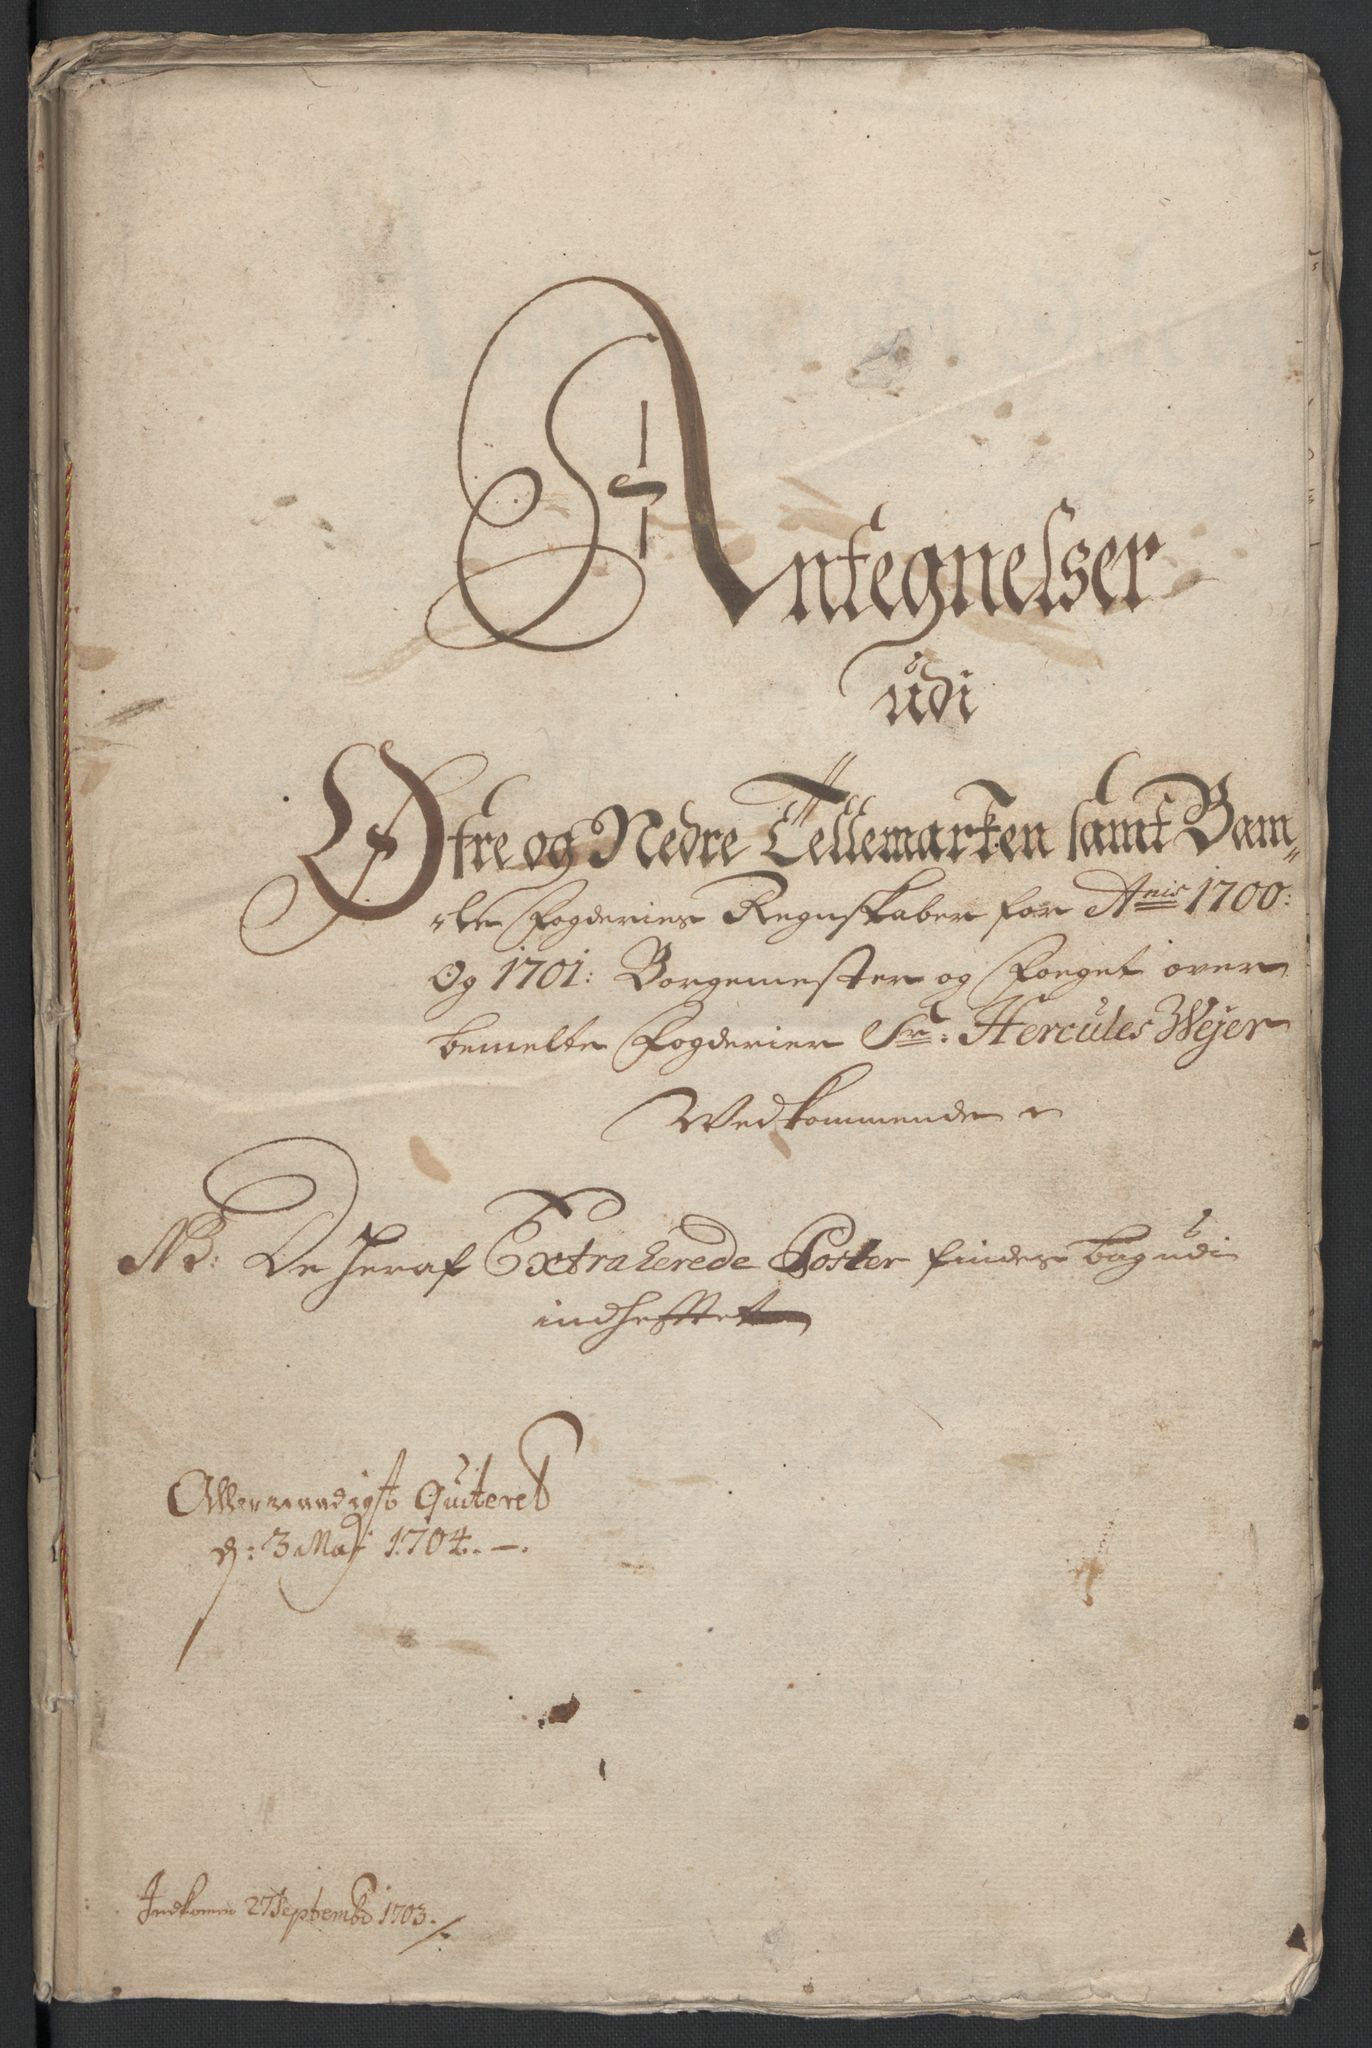 Antegnelser
udi
Øfre og Nedre Tellemarken samt Bam„
ble Fogderies Regnskaber for Anis 1700:
Og 1701: Borgemester og Foeget over
bemelte Fogderier Sr: Hercules Wejer
Vedkommende
NB: De heraf Extraherede Poster findes bag udi
indhefftet
Allernaadigst Quiteret
d: 3 Maj 1704.
Indkomen 27 Septembr 1703.